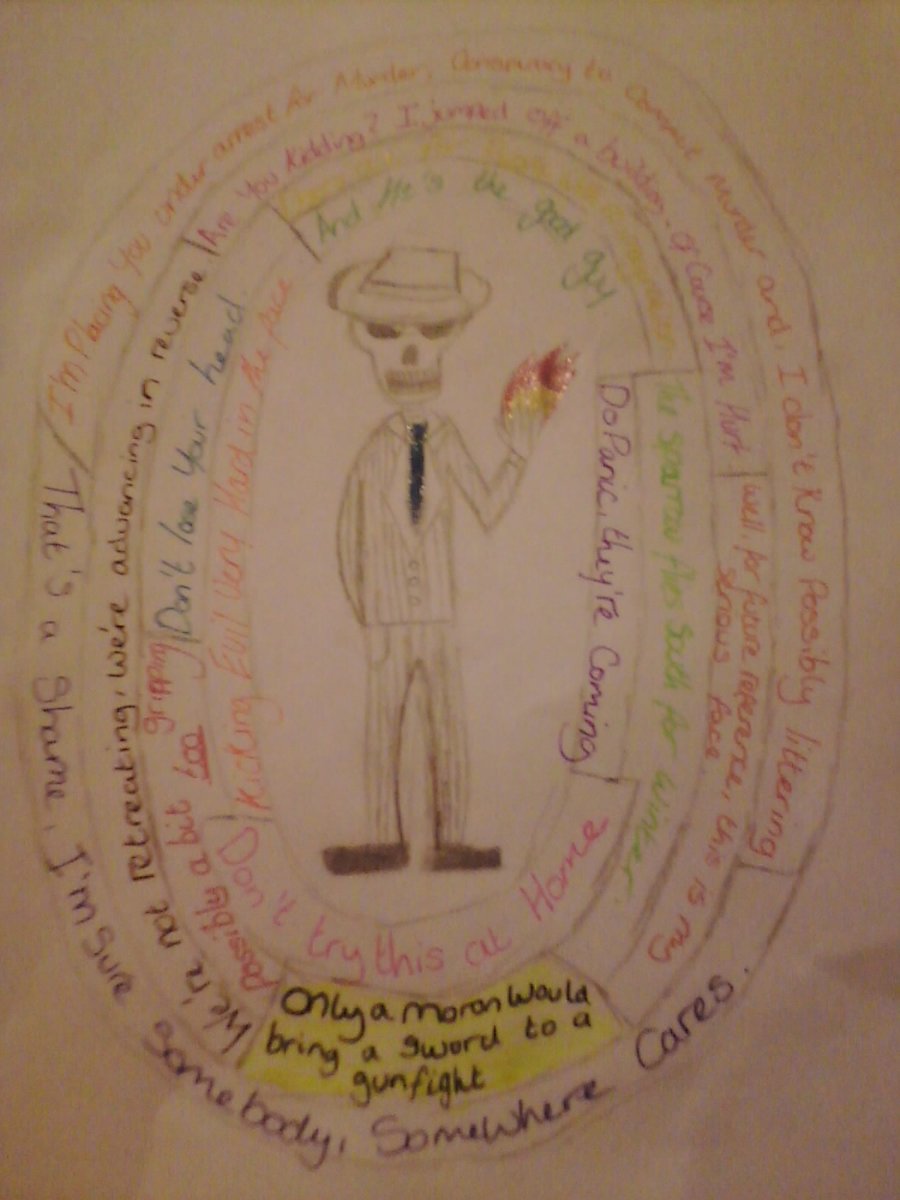 I'm Placing You under arrest for Murder, Conspiracy to Commit Murder and, I don't Know Possibly littering
That's a Shame. I'm sure Somebody, Somewhere Cares.
Are You Kidding? I jumped off a building, of Course I'm Hurt
Well, for future reference, this is my
serious face.
We're not retreating, we're advancing in reverse
The sparrow flies south for winter.
Possibly a bit too
gripping
Don't lose Your head.
And He's the good guy
Do Panic, they're Coming
Don't try this at Home
Kicking Evil Very Hard in the face
Only a moron Would
bring a sword to a
gunfight